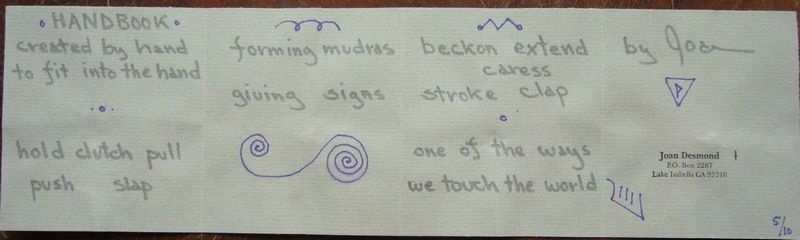 HANDBOOK
created by hand
to fit into the hand
hold clutch pull
push slap
forming mudras
giving signs
beckon extend
caress
stroke clap
one of the ways
we touch the world
by Joan
Joan Desmond
P.O. Box 2287
Lake Isabella CA 93240
5/10